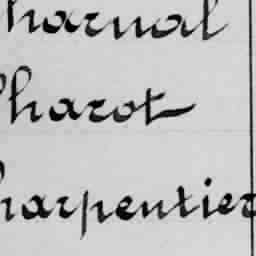 harnal
Charot
harpentier